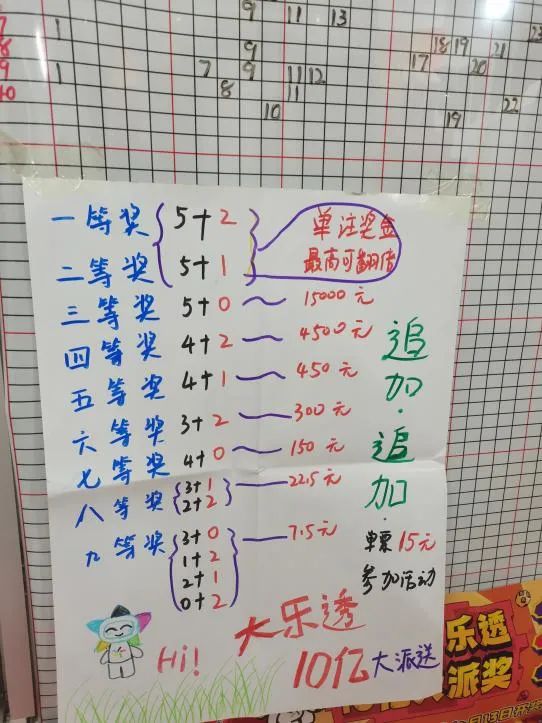 9 11 13
7 1
8 9 18 19 21 23
9 1 7 9 11 12 17 20
10 8 11
10 19 22
一等奖 5+2 单注奖金
二等奖 5+1 最高可翻倍
三等奖 5+0 15000元
四等奖 4+2 4500元
五等奖 4+1 450元
六等奖 3+2 300元
七等奖 4+0 150元
八等奖 3+1 22.5元
2+2
九等奖 3+0 7.5元
1+2
2+1
0+2
追加·追加
单票15元
参加活动
Hi!
大乐透
10亿大派送
乐透
派奖